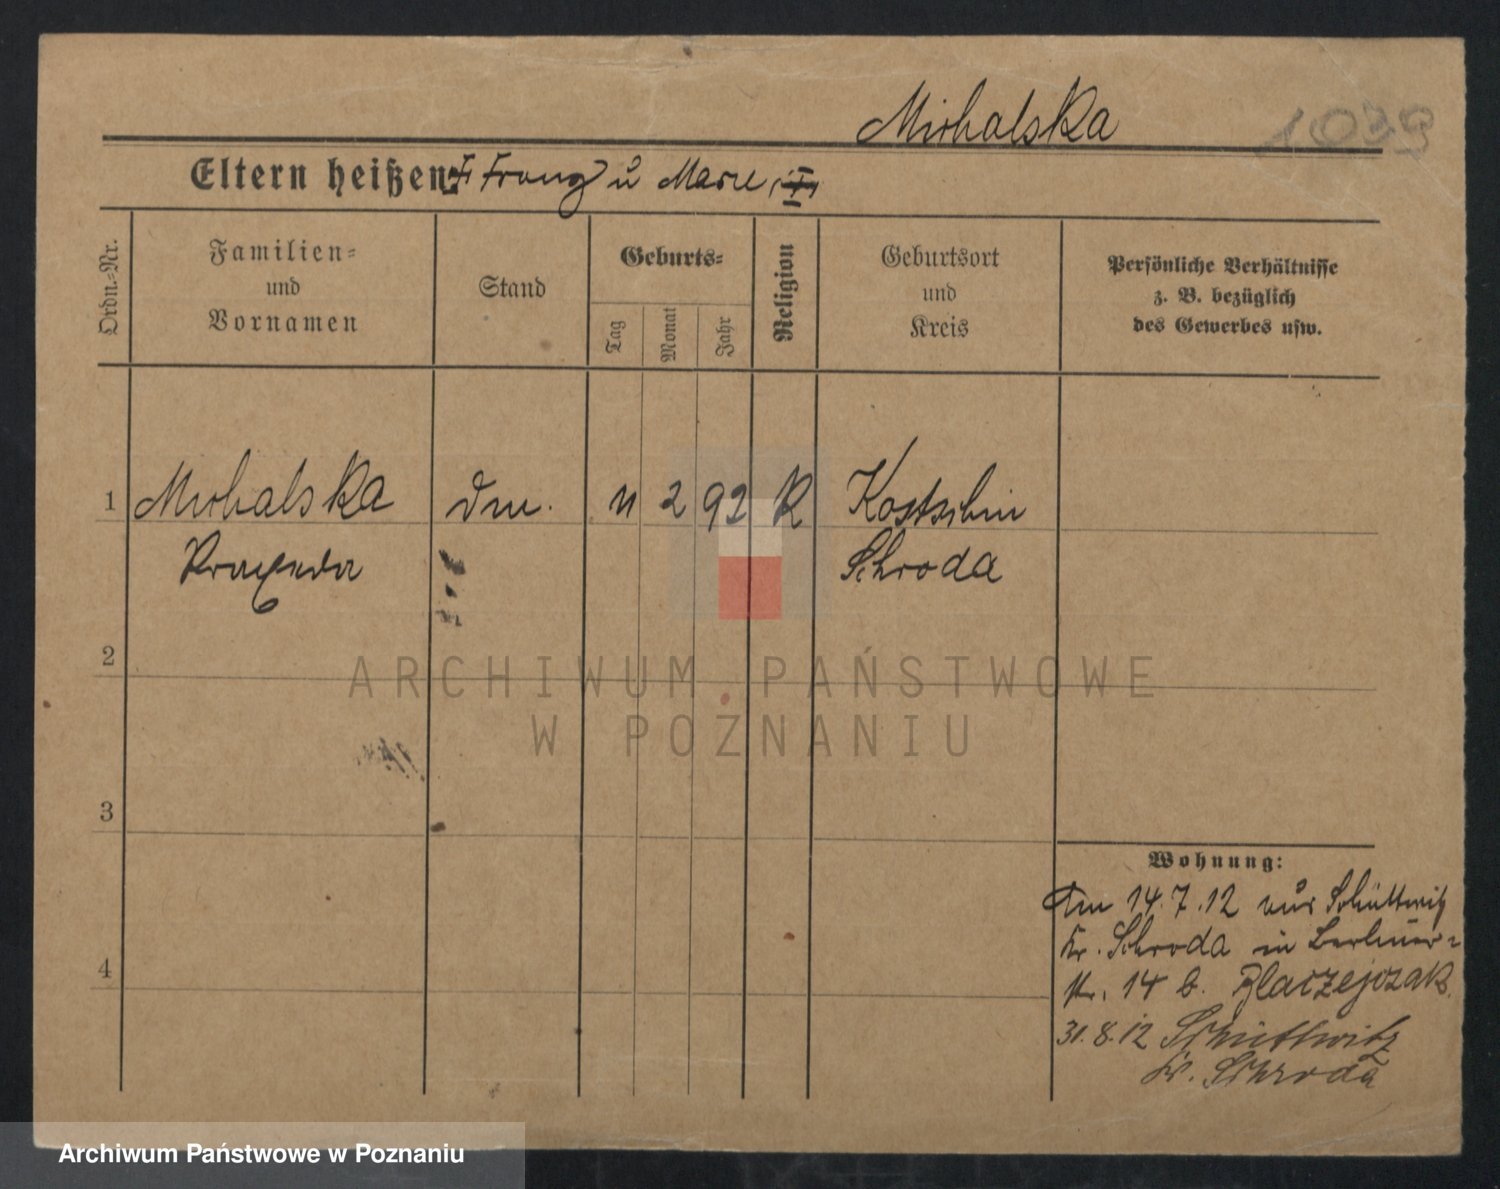 Michalska
1039
Eltern heißen Franz u Marie
Ordn.-Nr.
Familien=
und
Vornamen
Stand
Geburts=
Tag
Monat
Jahr
Religion
Geburtsort
und
Kreis
Persönliche Verhältnisse
z. B. bezüglich
des Gewerbes usw.
1 Michalska 2 92 K Kostschin
Praxeda Schroda
2
3
4
Wohnung:
Am 14.7.12 aus Schüttwitz
Kr. Schroda in Berliner=
str. 14 b. Blaczejczak.
31.8.12 Schuttwitz
Kr. Schroda
ARCHIWUM PAŃSTWOWE
W POZNANIU
Archiwum Państwowe w Poznaniu